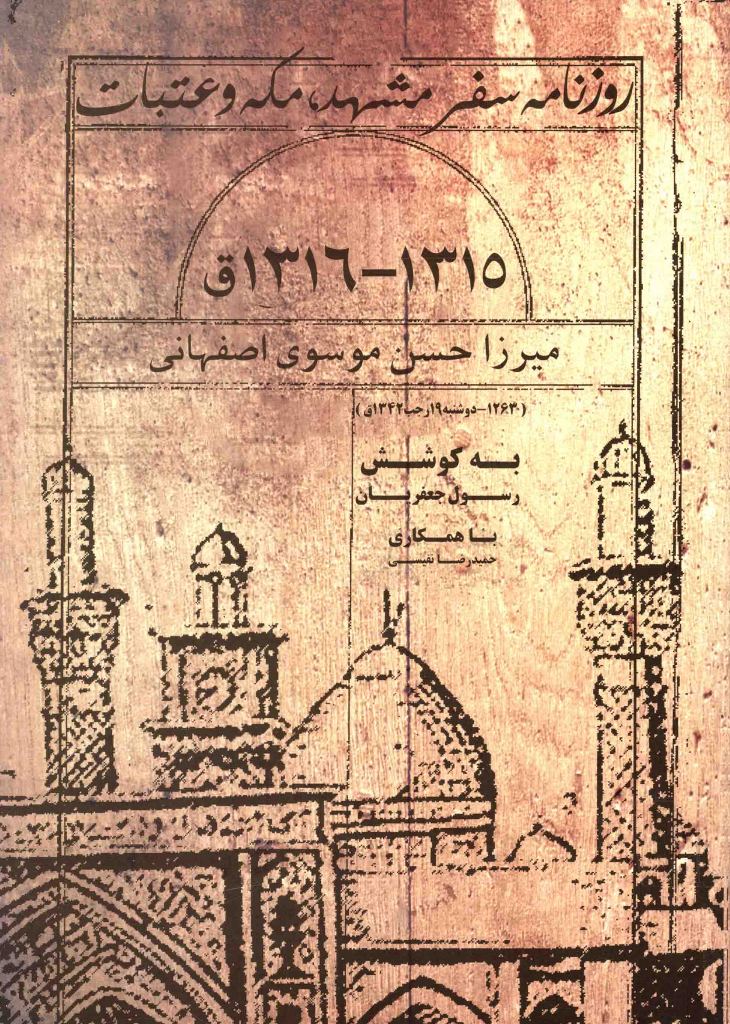 روزنامه سفر مشهد، مکه و عتبات
۱۳۱۵–۱۳۱۶ق
میرزا حسن موسوی اصفهانی
(۱۲۶۳–دوشنبه ۱۹ رجب ۱۳۴۲ق)
به کوشش
رسول جعفریان
با همکاری
حمیدرضا نفیسی